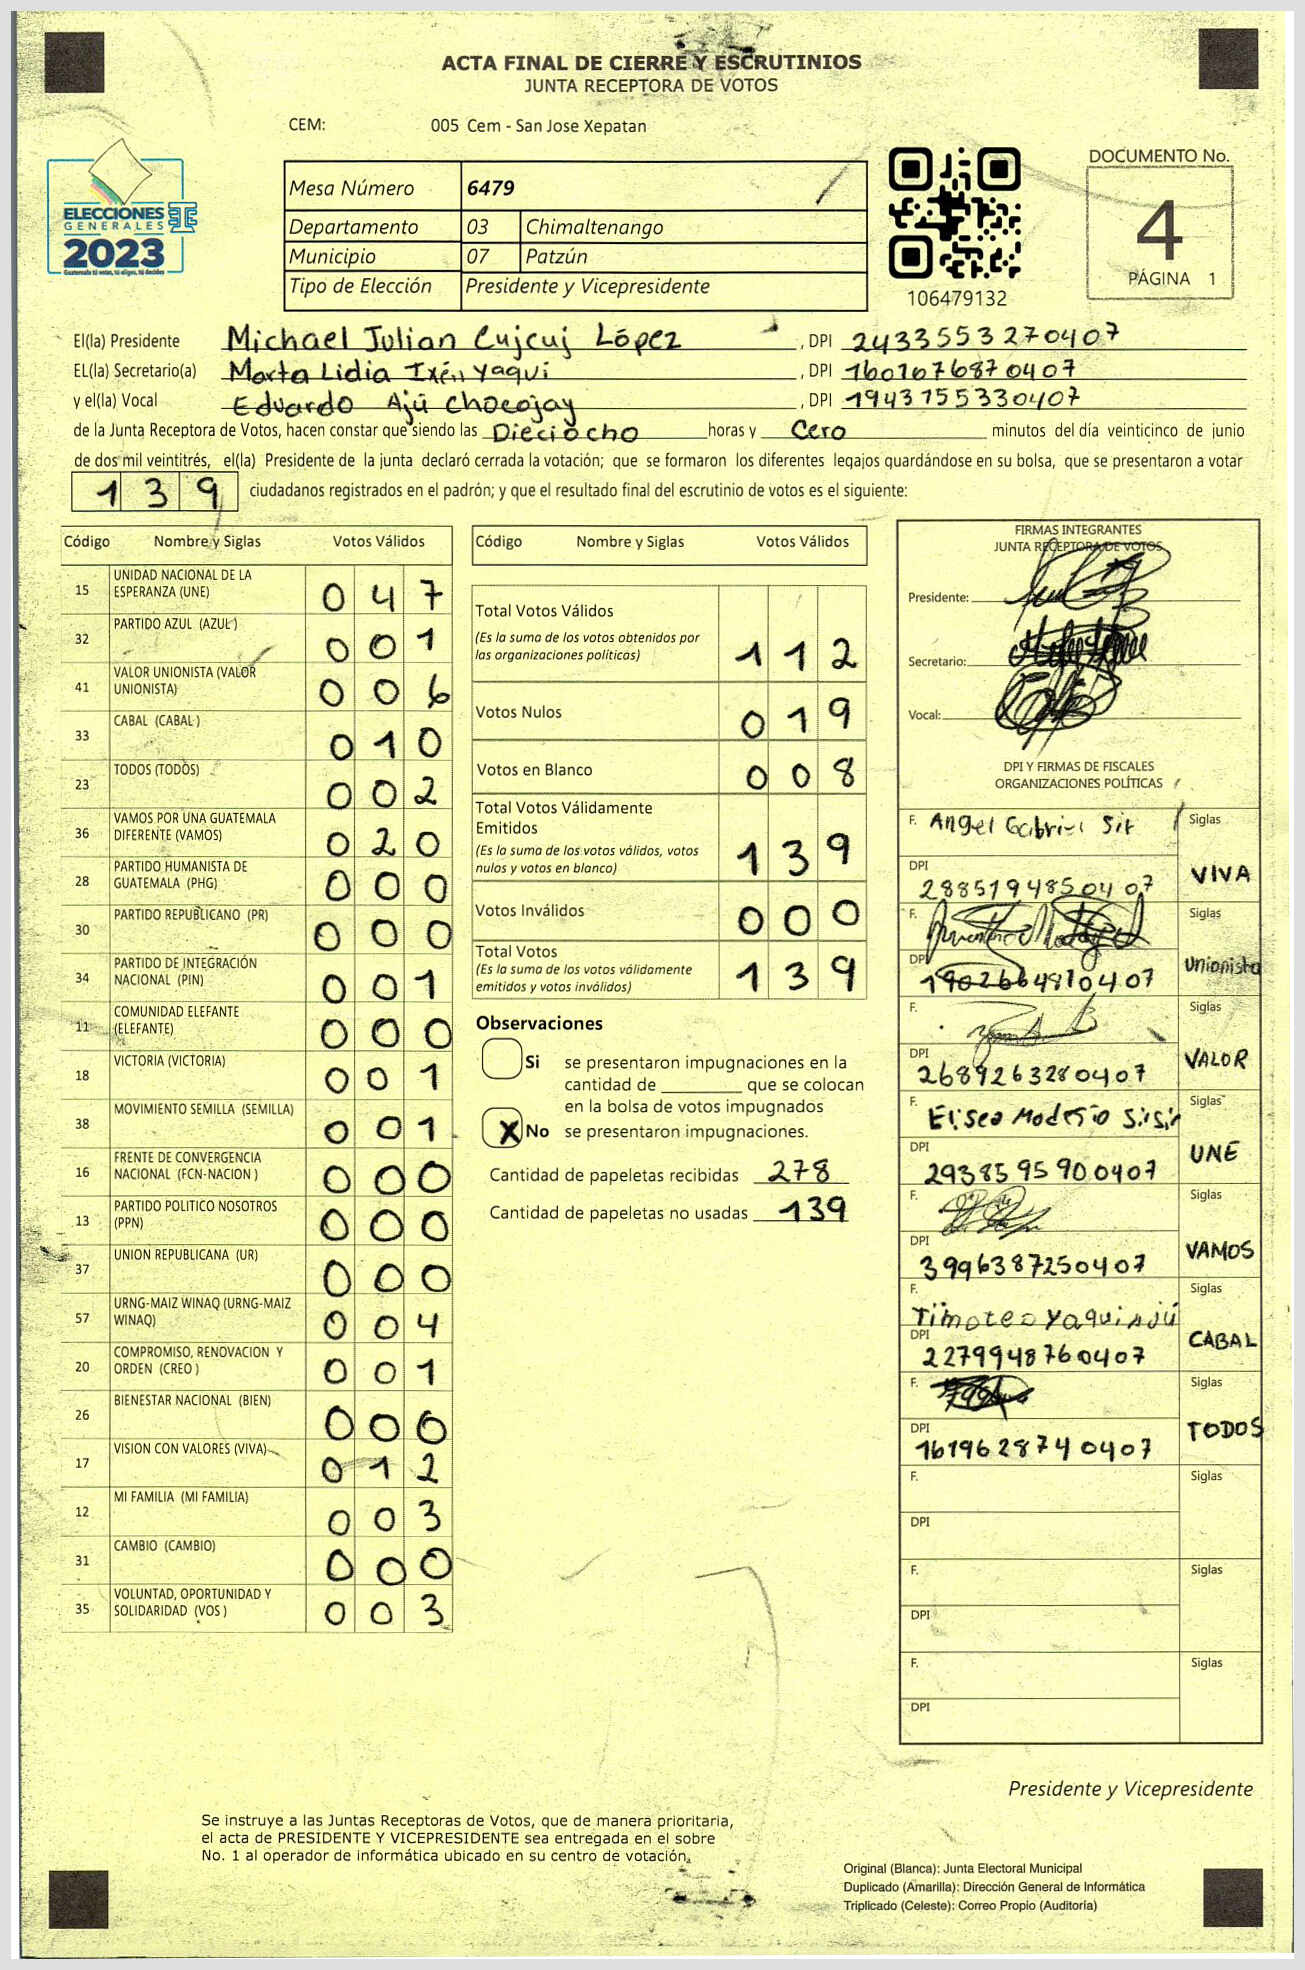 ACTA FINAL DE CIERRE Y ESCRUTINIOS
JUNTA RECEPTORA DE VOTOS
CEM: 005 Cem - San Jose Xepatan
ELECCIONES
GENERALES
2023
Guatemala tú votas, tú eliges, tú decides
Mesa Número 6479
Departamento 03 Chimaltenango
Municipio 07 Patzún
Tipo de Elección Presidente y Vicepresidente
106479132
DOCUMENTO No.
4
PÁGINA 1
El(la) Presidente Michael Julian Cujcuj López, DPI 2433553270407
EL(la) Secretario(a) Marta Lidia Ixén Yaqui, DPI 1601676870407
y el(la) Vocal Eduardo Ajú Chocojay, DPI 1943755330407
de la Junta Receptora de Votos, hacen constar que siendo las Dieciocho horas y Cero minutos del día veinticinco de junio
de dos mil veintitrés, el(la) Presidente de la junta declaró cerrada la votación; que se formaron los diferentes legajos guardándose en su bolsa, que se presentaron a votar
139 ciudadanos registrados en el padrón; y que el resultado final del escrutinio de votos es el siguiente:
Código Nombre y Siglas Votos Válidos
15 UNIDAD NACIONAL DE LA ESPERANZA (UNE) 047
32 PARTIDO AZUL (AZUL) 001
41 VALOR UNIONISTA (VALOR UNIONISTA) 006
33 CABAL (CABAL) 010
23 TODOS (TODOS) 002
36 VAMOS POR UNA GUATEMALA DIFERENTE (VAMOS) 020
28 PARTIDO HUMANISTA DE GUATEMALA (PHG) 000
30 PARTIDO REPUBLICANO (PR) 000
34 PARTIDO DE INTEGRACIÓN NACIONAL (PIN) 001
11 COMUNIDAD ELEFANTE (ELEFANTE) 000
18 VICTORIA (VICTORIA) 001
38 MOVIMIENTO SEMILLA (SEMILLA) 001
16 FRENTE DE CONVERGENCIA NACIONAL (FCN-NACION) 000
13 PARTIDO POLITICO NOSOTROS (PPN) 000
37 UNION REPUBLICANA (UR) 000
57 URNG-MAIZ WINAQ (URNG-MAIZ WINAQ) 004
20 COMPROMISO, RENOVACION Y ORDEN (CREO) 001
26 BIENESTAR NACIONAL (BIEN) 000
17 VISION CON VALORES (VIVA) 012
12 MI FAMILIA (MI FAMILIA) 003
31 CAMBIO (CAMBIO) 000
35 VOLUNTAD, OPORTUNIDAD Y SOLIDARIDAD (VOS) 003
Código Nombre y Siglas Votos Válidos
Total Votos Válidos
(Es la suma de los votos obtenidos por
las organizaciones políticas) 112
Votos Nulos 019
Votos en Blanco 008
Total Votos Válidamente
Emitidos
(Es la suma de los votos válidos, votos
nulos y votos en blanco) 139
Votos Inválidos 000
Total Votos
(Es la suma de los votos válidamente
emitidos y votos inválidos) 139
Observaciones
Si se presentaron impugnaciones en la
cantidad de ________ que se colocan
en la bolsa de votos impugnados
X No se presentaron impugnaciones.
Cantidad de papeletas recibidas 278
Cantidad de papeletas no usadas 139
FIRMAS INTEGRANTES
JUNTA RECEPTORA DE VOTOS
Presidente:
Secretario:
Vocal:
DPI Y FIRMAS DE FISCALES
ORGANIZACIONES POLÍTICAS
F. Angel Gabriel Sit Siglas
DPI 2885194850407 VIVA
F. Siglas
DPI 1902664810407 Unionista
F. Siglas
DPI 2689263280407 VALOR
F. Eliseo Modesto Sisir Siglas
DPI 2938595900407 UNE
F. Siglas
DPI 3996387250407 VAMOS
F. Timoteo Yaqui Ajú Siglas
DPI 2279948760407 CABAL
F. Siglas
DPI 1619628740407 TODOS
F. Siglas
DPI
F. Siglas
DPI
F. Siglas
DPI
Presidente y Vicepresidente
Se instruye a las Juntas Receptoras de Votos, que de manera prioritaria,
el acta de PRESIDENTE Y VICEPRESIDENTE sea entregada en el sobre
No. 1 al operador de informática ubicado en su centro de votación.
Original (Blanca): Junta Electoral Municipal
Duplicado (Amarilla): Dirección General de Informática
Triplicado (Celeste): Correo Propio (Auditoría)